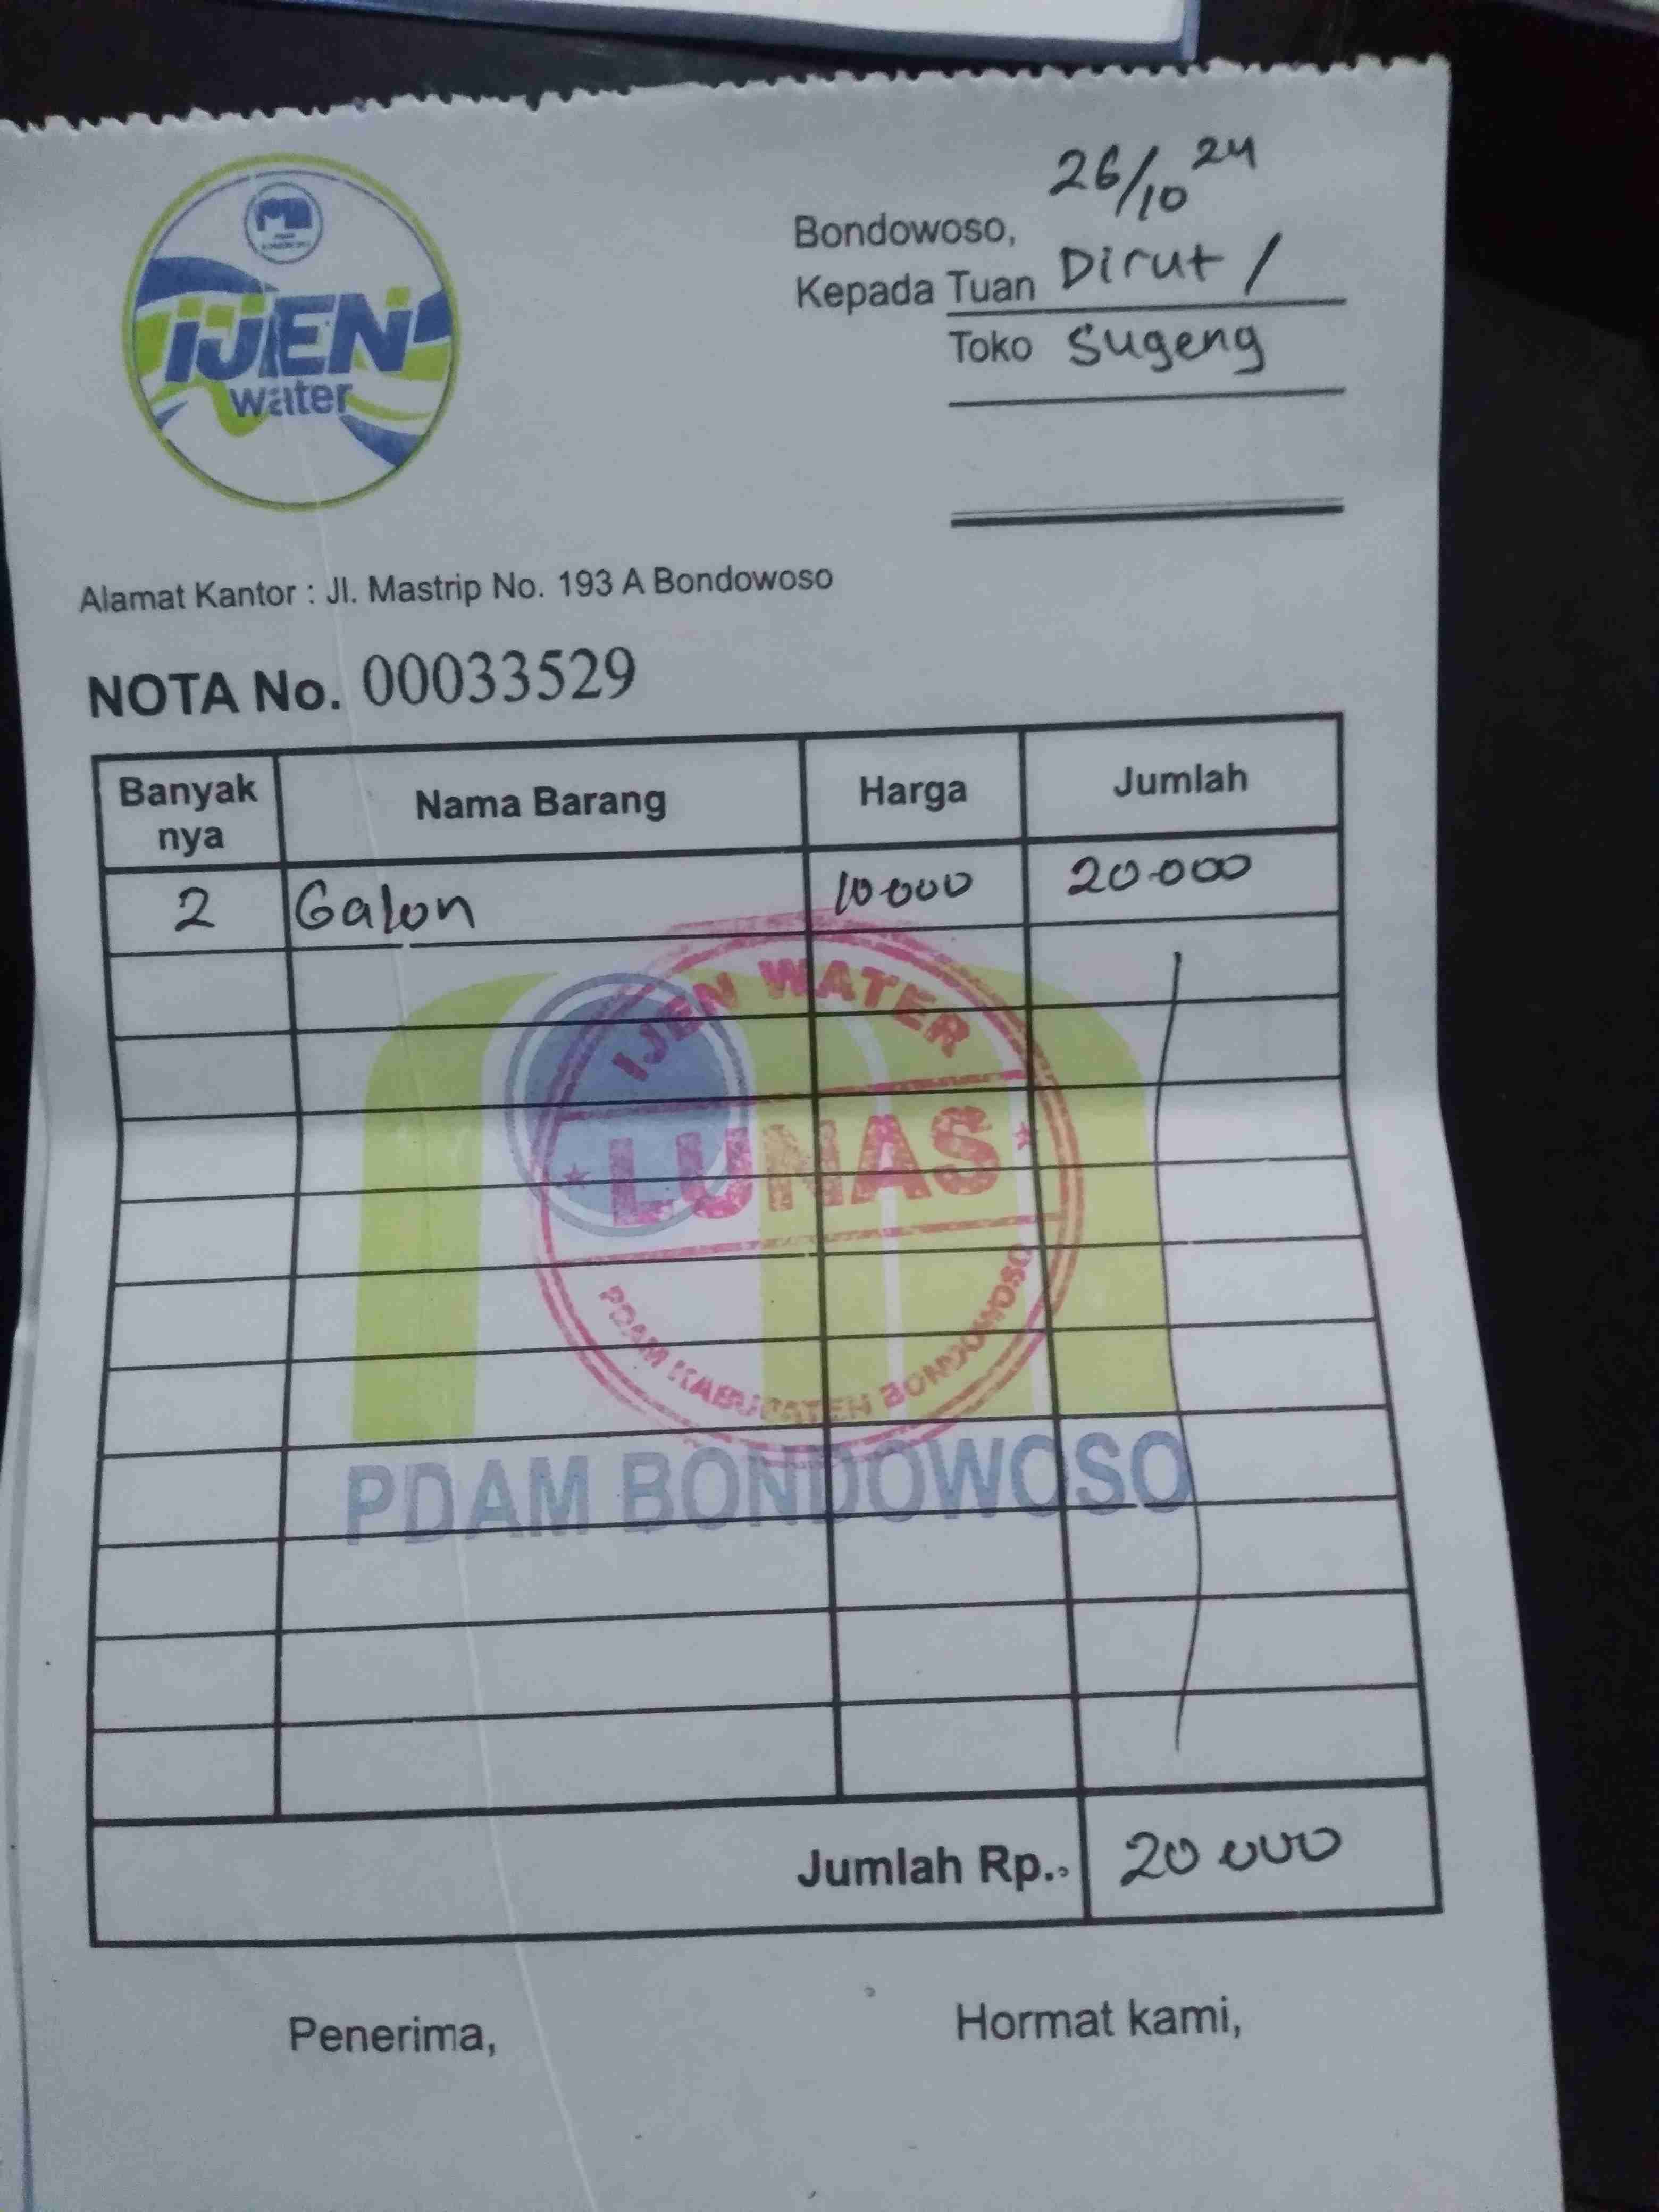 IJEN
water
26/10 24
Bondowoso,
Kepada Tuan Dirut /
Toko Sugeng
Alamat Kantor : Jl. Mastrip No. 193 A Bondowoso
NOTA No. 00033529
Banyak nya Nama Barang Harga Jumlah
2 Galon 10.000 20.000
IJEN WATER
LUNAS
PDAM KABUPATEN BONDOWOSO
PDAM BONDOWOSO
Jumlah Rp.. 20 000
Penerima, Hormat kami,